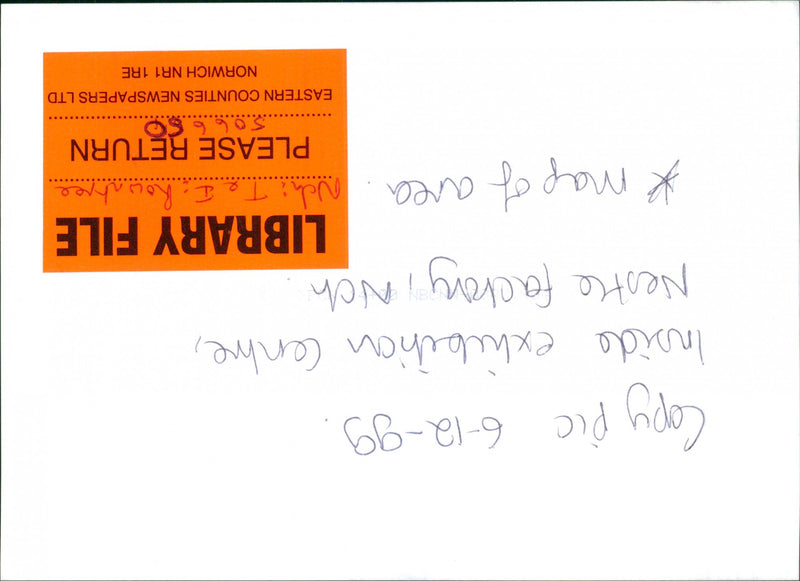 Copy pic 6-12-99.
Inside exhibition centre,
Nestle factory, Nch.
* map of area.
LIBRARY FILE
Nch: T e I: Rowntree
PLEASE RETURN
506660
EASTERN COUNTIES NEWSPAPERS LTD
NORWICH NR1 1RE